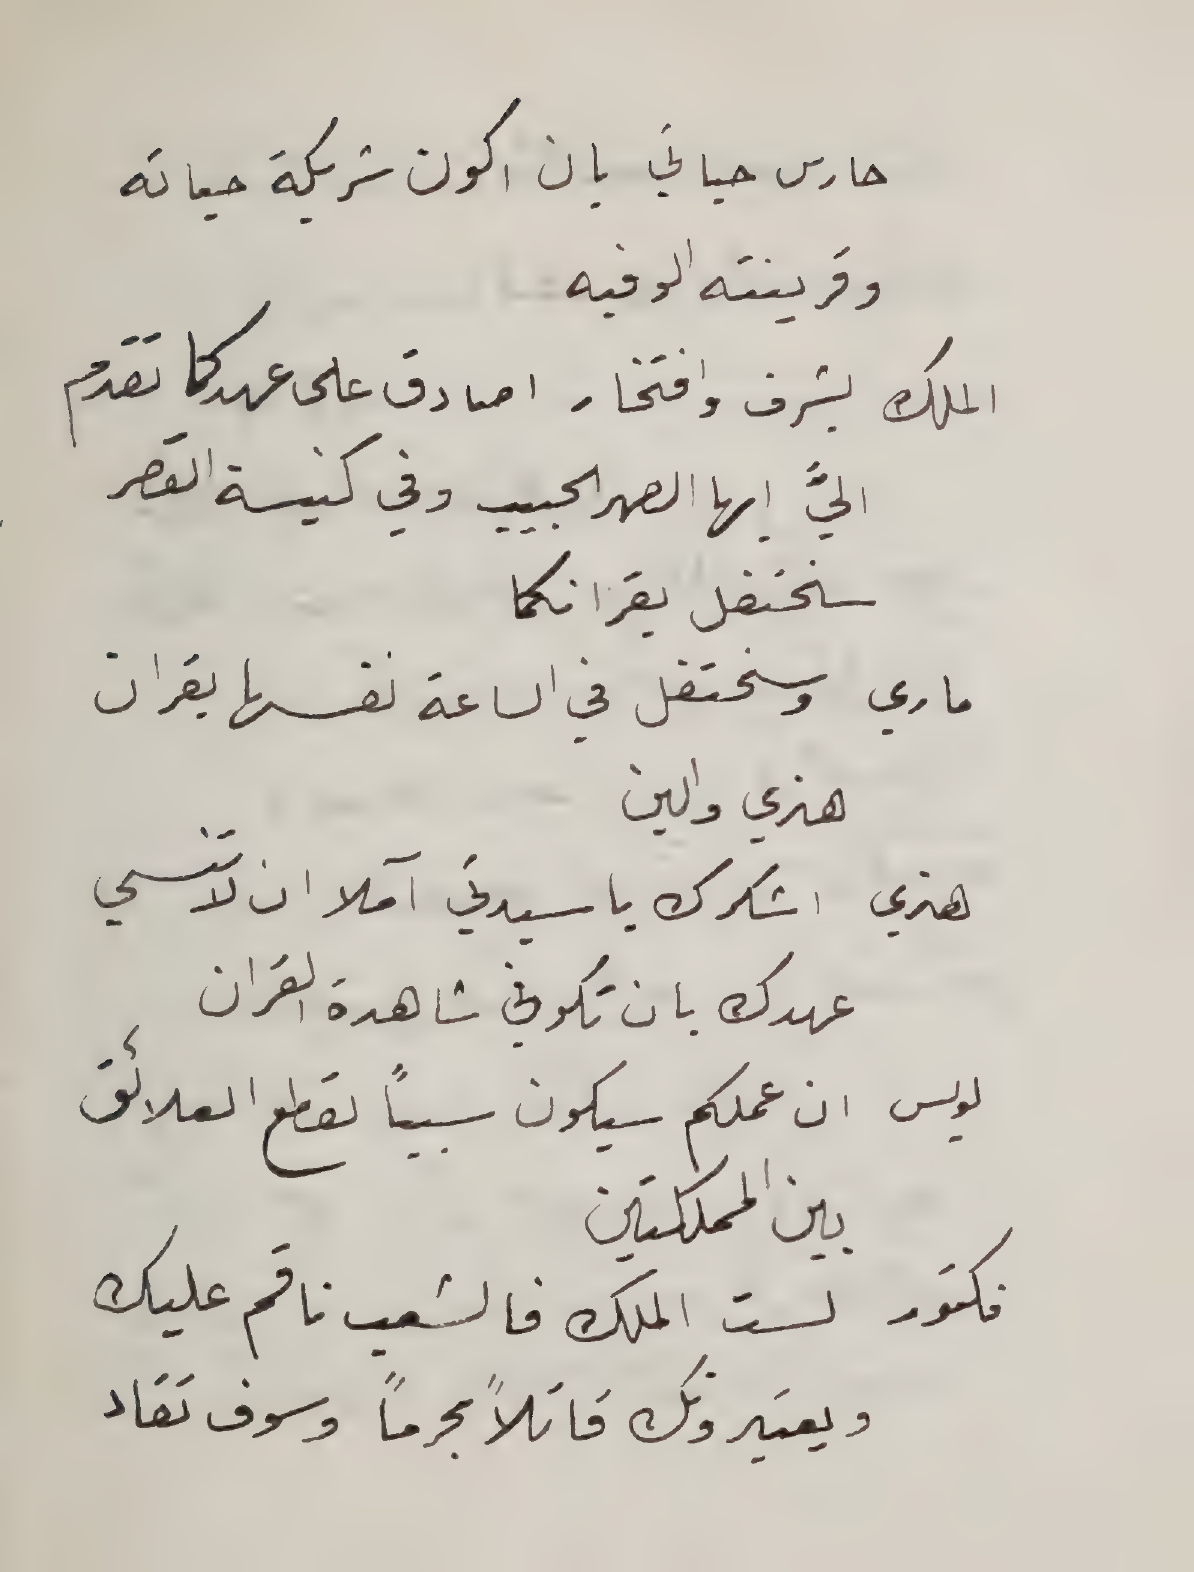 حارس حياتي بان اكون شريكة حياته
وقرينته الوفيه
الملك بشرف وافتخار اصادق على عهدكما تقدم
اليَّ ايها الصهر الحبيب وفي كنيسة القصر
سنحتفل بقرانكما
ماري وسنحتفل في الساعة نفسها بقران
هنري والين
هنري اشكرك يا سيدتي آملا ان لا تنسي
عهدك بان تكوني شاهدة القران
لويس ان عملكم سيكون سبباً لقطع العلائق
بين المملكتين
فكتور لست الملك فالشعب ناقم عليك
ويعتبرونك قاتلاً مجرماً وسوف تقاد